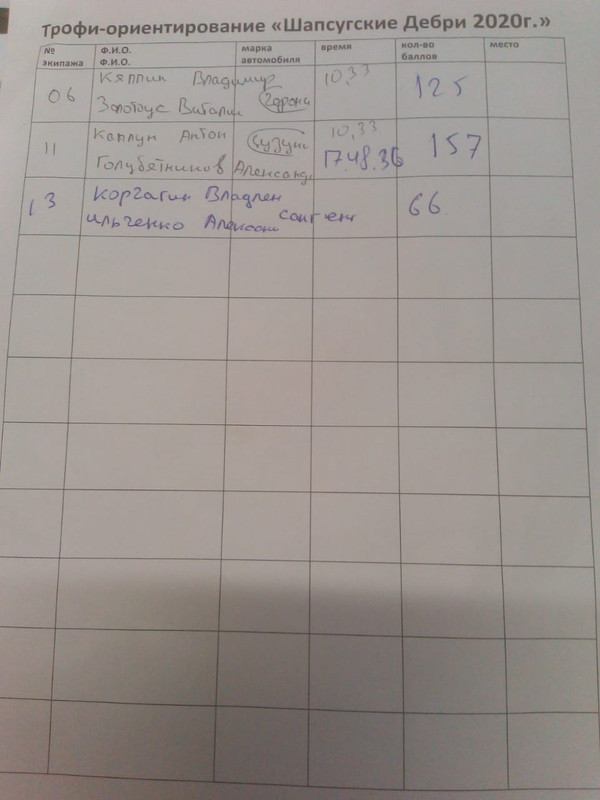 Трофи-ориентирование «Шапсугские Дебри 2020г.»
№ экипажа Ф.И.О. Ф.И.О. марка автомобиля время кол-во баллов место
06 Каплин Владимир 10.33 125
Золотоус Виталий
11 Каплун Антон Сузуки 10.33 157
Голубятников Александр 17.48.36
13 Корчагин Владлен 66
Ильченко Алексан Санг-енг